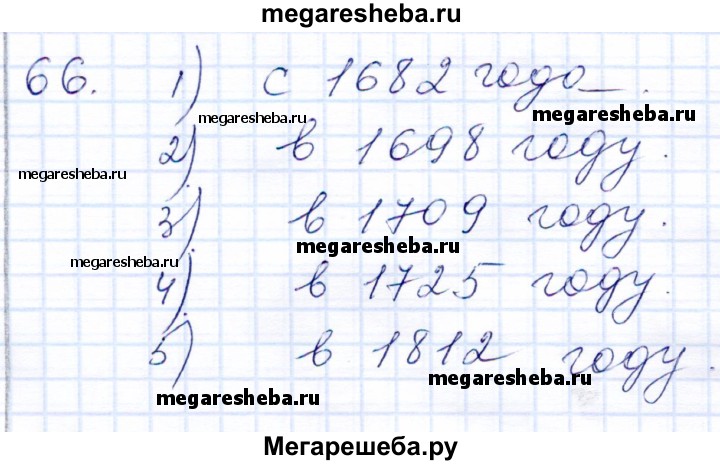 megaresheba.ru
66. 1) с 1682 года.
megaresheba.ru megaresheba.ru
2) в 1698 году.
megaresheba.ru
3) в 1709 году.
megaresheba.ru megaresheba.ru
4) в 1725 году.
5) в 1812 году.
megaresheba.ru megaresheba.ru
Мегарешеба.ру